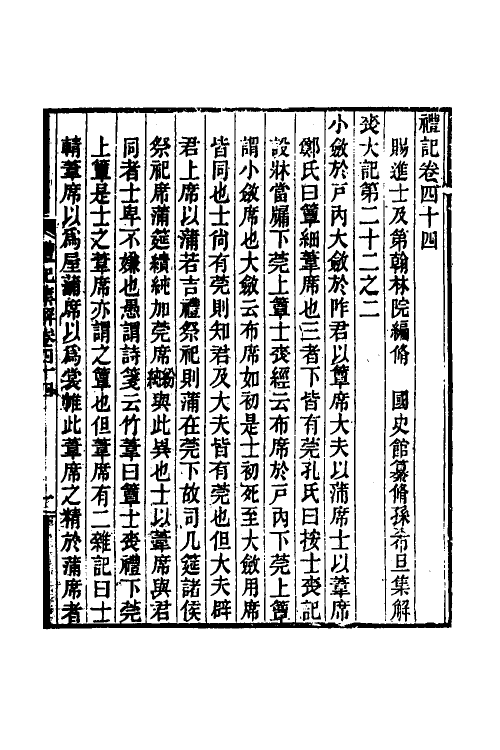 禮記卷四十四
賜進士及第翰林院編脩　國史館纂脩孫希旦集解
喪大記第二十二之二
小斂於戶內大斂於阼君以簟席大夫以蒲席士以葦席
鄭氏曰簟細葦席也三者下皆有莞孔氏曰按士喪記
設牀當牖下莞上簟士喪經云布席於戶內下莞上簟
謂小斂席也大斂云布席如初是士初死至大斂用席
皆同也士尚有莞則知君及大夫皆有莞也但大夫辟
君上席以蒲若吉禮祭祀則蒲在莞下故司几筵諸侯
祭祀席蒲筵繢純加莞席紛純與此異也士以葦席與君
同者士卑不嫌也愚謂詩箋云竹葦曰簟士喪禮下莞
上簟是士之葦席亦謂之簟也但葦席有二雜記曰士
輤葦席以爲屋蒲席以爲裳帷此葦席之精於蒲席者
禮記集解卷四十四